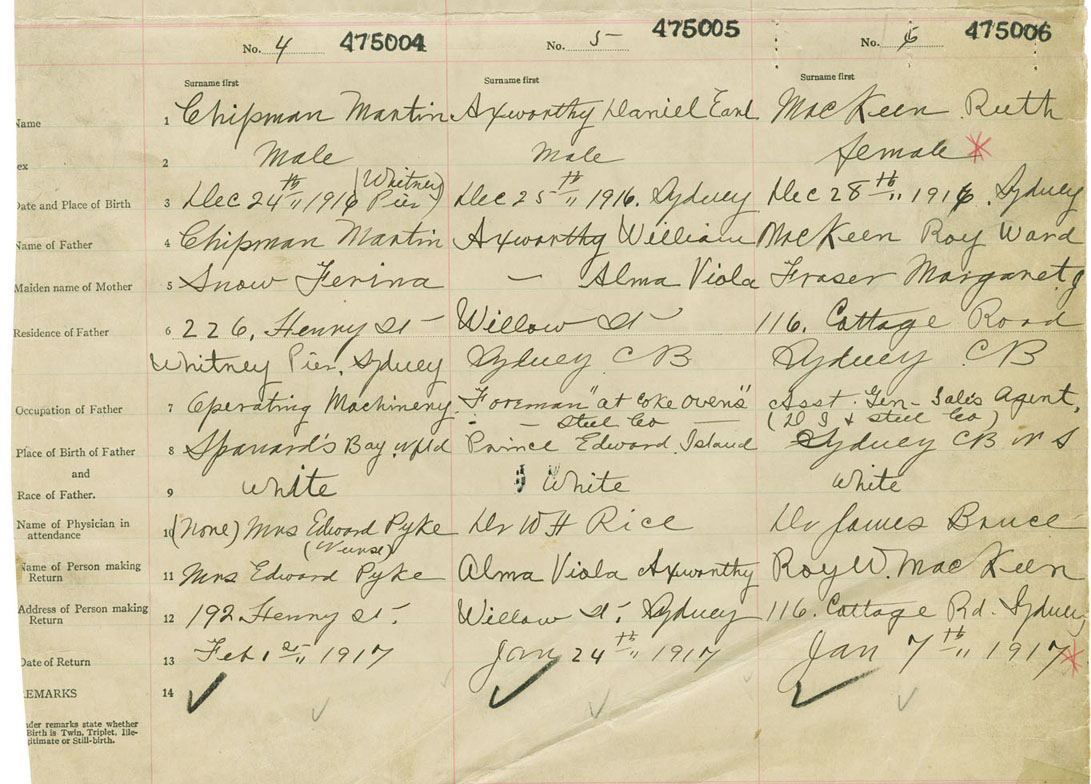 No. 4 475004 No. 5 475005 No. 6 475006
Surname first Surname first Surname first
Name 1 Chipman Martin Axworthy Daniel Earl MacKeen Ruth
ex 2 Male Male female
Date and Place of Birth 3 Dec 24th 1916 (Whitney Pier) Dec 25th 1916. Sydney Dec 28th 1916. Sydney
Name of Father 4 Chipman Martin Axworthy William MacKeen Roy Ward
Maiden name of Mother 5 Snow Ferina — Alma Viola Fraser Margaret J
Residence of Father 6 226, Henry St Willow St 116. Cottage Road
Whitney Pier, Sydney Sydney CB Sydney CB
Occupation of Father 7 Operating Machinery Foreman "at Coke Ovens" Asst. Gen- Sales Agent,
- - Steel Co — (D I & Steel Co)
Place of Birth of Father 8 Spanard's Bay, Nfld Prince Edward Island Sydney CB N S
and
Race of Father. 9 White White White
Name of Physician in attendance 10 (None) Mrs Edward Pyke Dr W H Rice Dr James Bruce
(Nurse)
Name of Person making Return 11 Mrs Edward Pyke Alma Viola Axworthy Roy W. MacKeen
Address of Person making Return 12 192 Henry St. Willow St. Sydney 116. Cottage Rd. Sydney
Date of Return 13 Feb 1st 1917 Jan 24th 1917 Jan 7th 1917
EMARKS 14
der remarks state whether
Birth is Twin, Triplet, Ille-
gitimate or Still-birth.